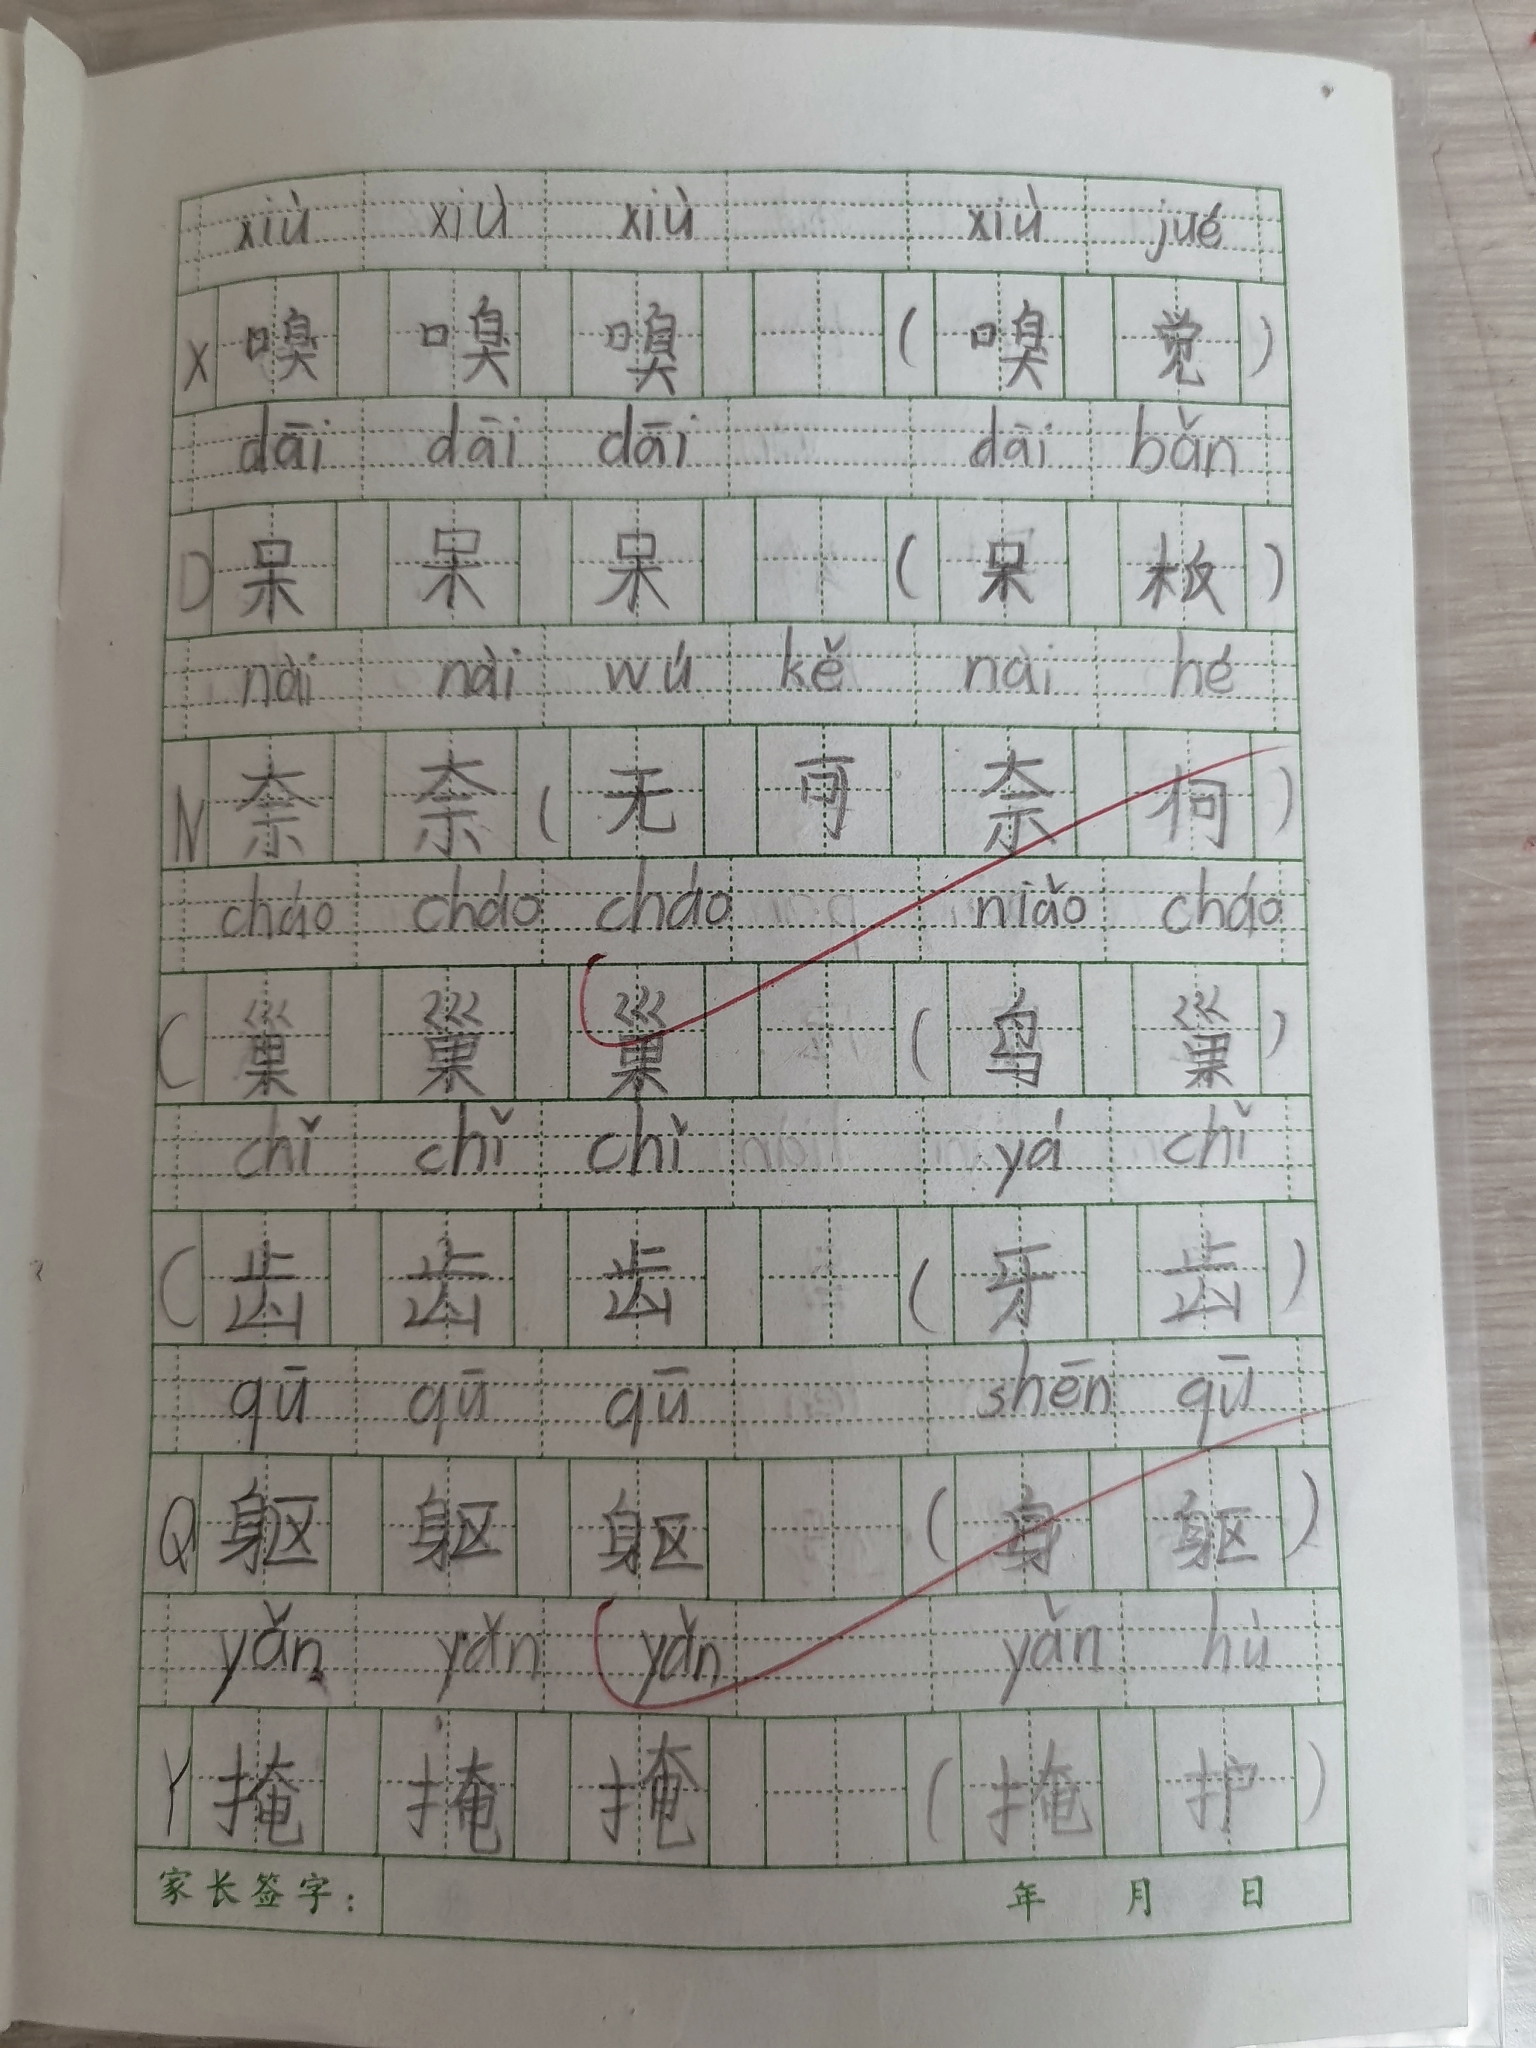 xiù xiù xiù xiù jué
X 嗅 嗅 嗅 ( 嗅 觉 )
dāi dāi dāi dāi bǎn
D 呆 呆 呆 ( 呆 板 )
nài nài wú kě nài hé
N 奈 奈 ( 无 可 奈 何 )
cháo cháo cháo niǎo cháo
C 巢 巢 巢 ( 鸟 巢 )
chǐ chǐ chǐ yá chǐ
C 齿 齿 齿 ( 牙 齿 )
qū qū qū shēn qū
Q 躯 躯 躯 ( 身 躯 )
yǎn yǎn yǎn yǎn hù
Y 掩 掩 掩 ( 掩 护 )
家长签字: 年 月 日